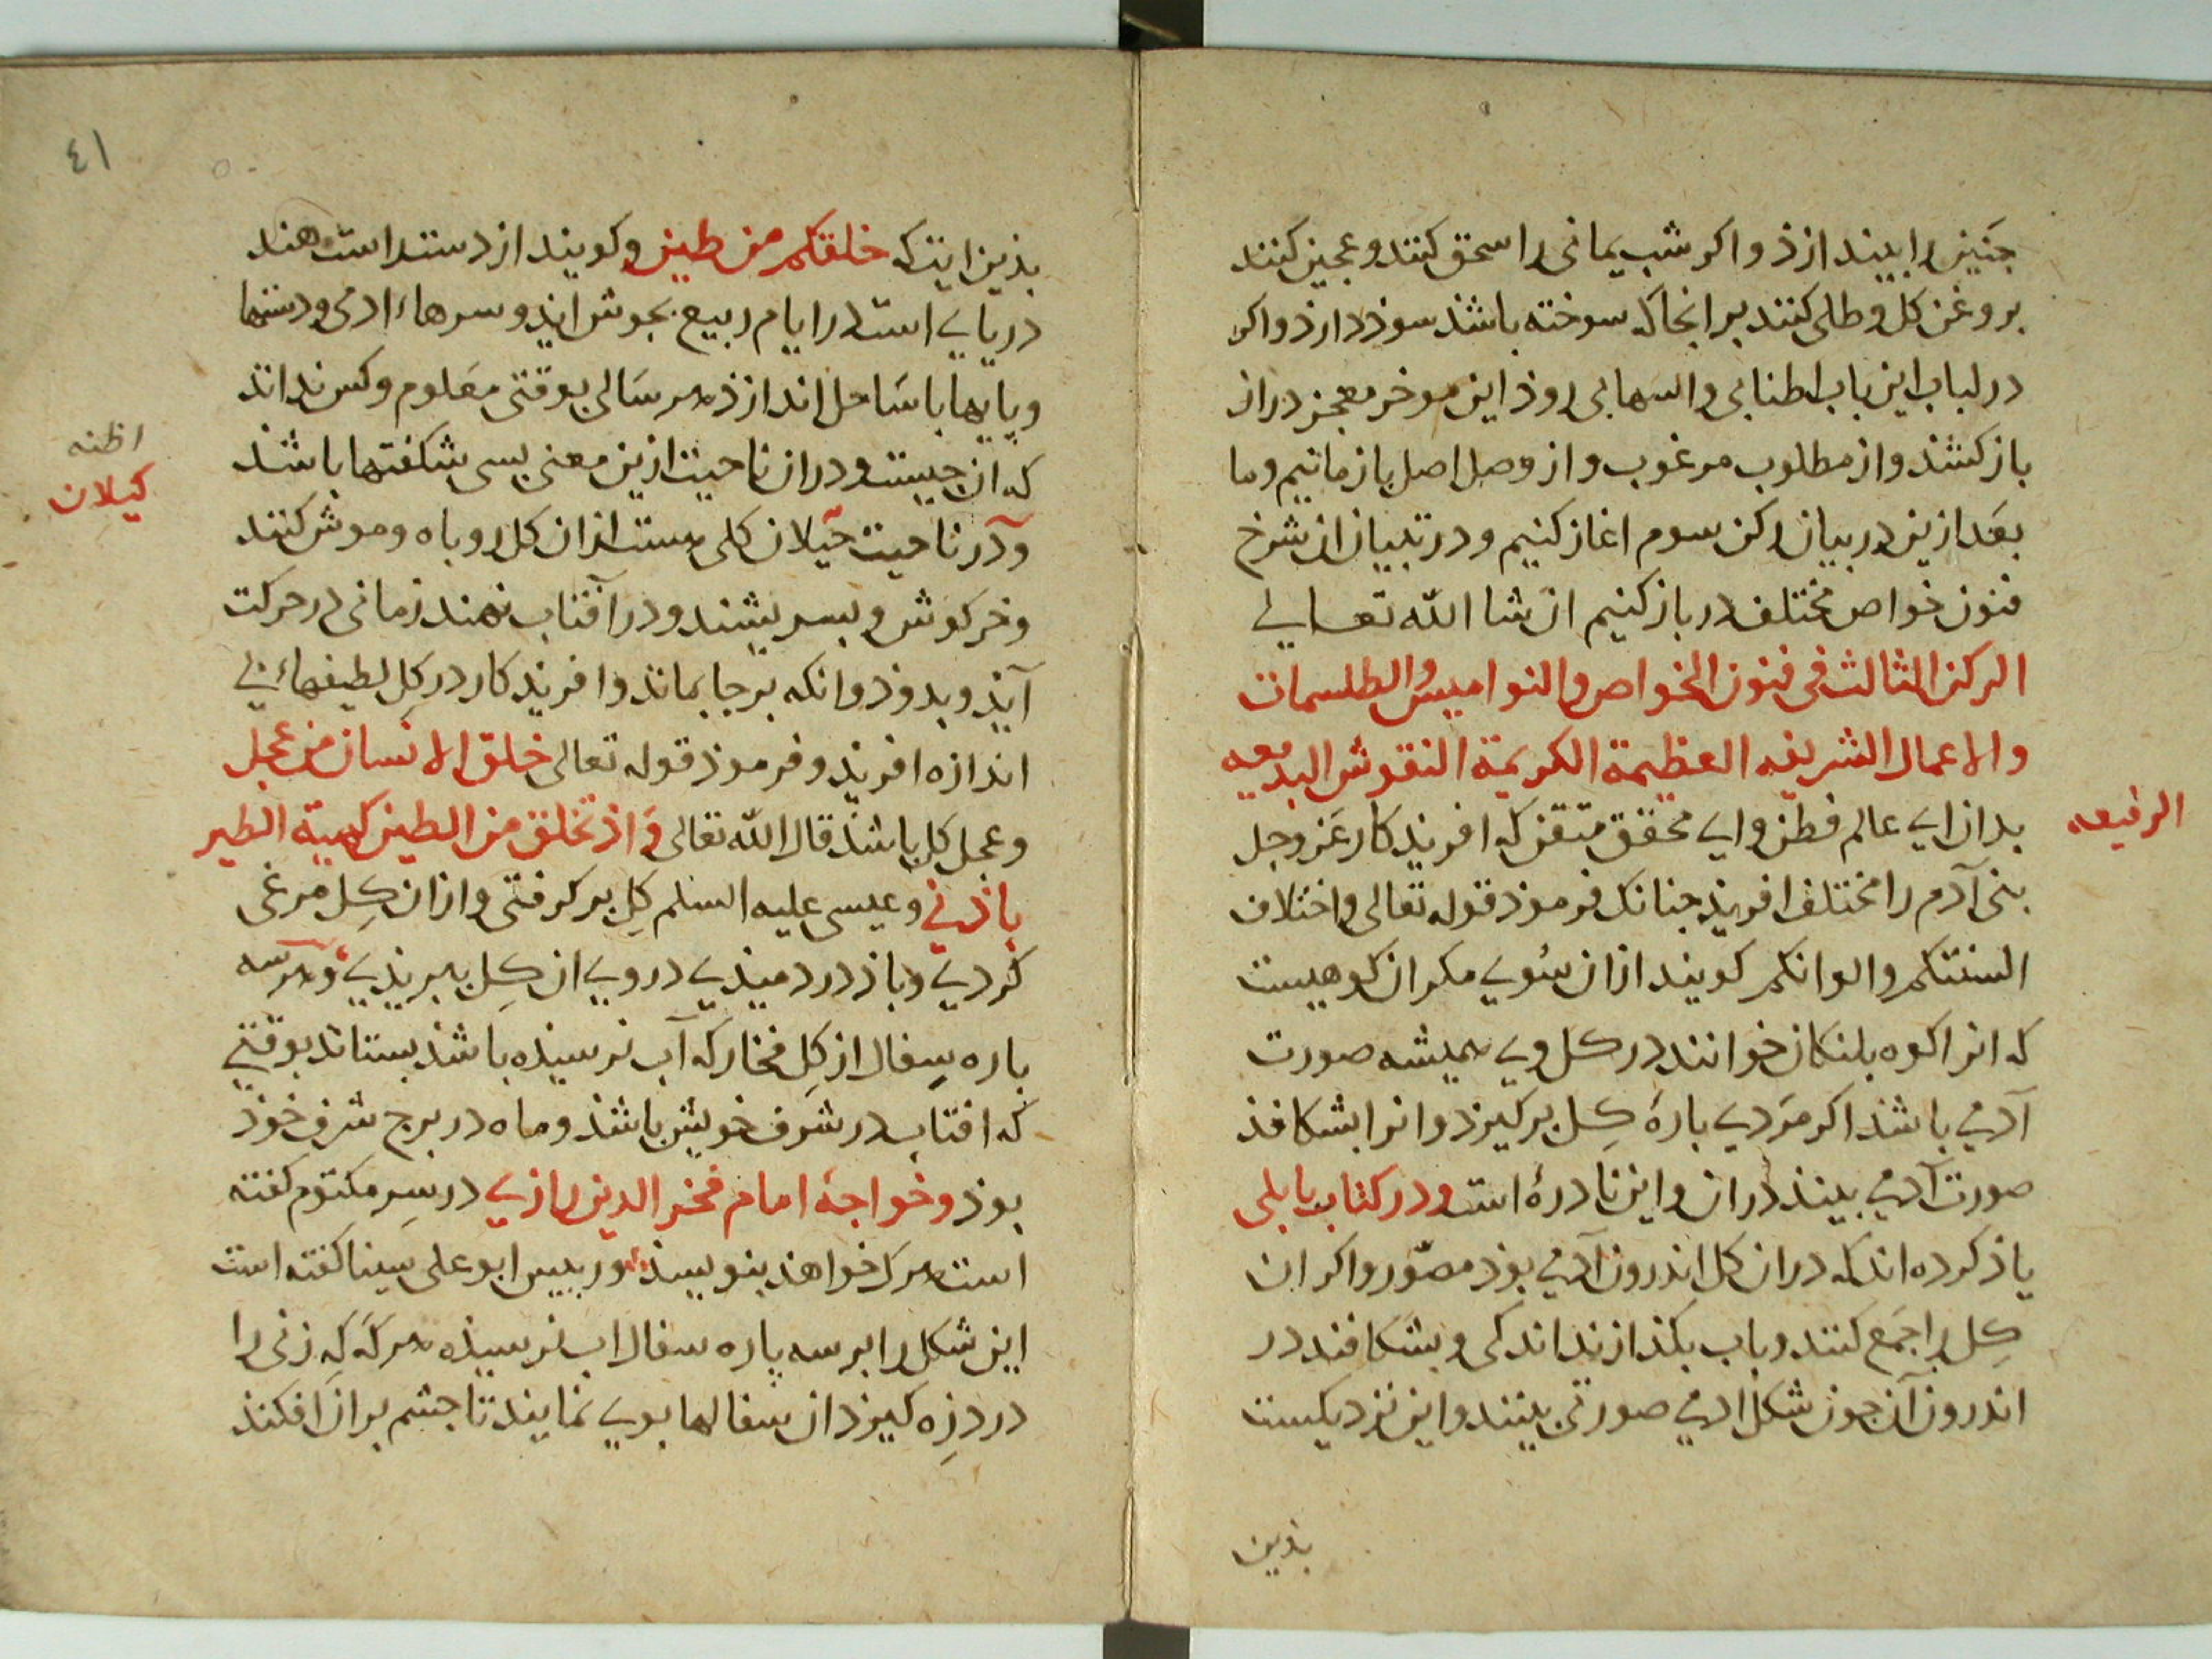 جنین را بیندازذ و اکر شب یمانی را سحق کنند و عجین کنند
بروغن کل و طلی کنند بر انجا که سوخته باشذ سوذ دارذ و اکر
در لباب این باب اطنابی و اسهابی روذ این موخر معجز دراز
باز کشذ و از مطلوب مرغوب و از وصل اصل باز مانیم و ما
بعد ازین در بیان رکن سوم اغاز کنیم و در تبیان ان شرح
فنون خواص مختلف در باز کنیم ان شا الله تعالی
الرکن الثالث فی فنون الخواص والنوامیس والطلسمات
والاعمال الشریفه العظیمة الکریمة النقوش البدیعه
الرفیعه
بدان ای عالم فطن و ای محقق متقن که افریذکار عز وجل
بنی آدم را مختلف افریذ جنانک فرموذ قوله تعالی واختلاف
السنتکم والوانکم کویند ازان سُوی مکران کوهیست
که انرا کوه بلنکان خوانند در کل وی همیشه صورت
آدمی باشذ اکر مردی بارهٔ کِل برکیرذ و انرا بشکافذ
صورت آدمی بیند دران و این نادرهٔ است و در کتاب بابلی
یاذ کرده اند که دران کل اندرون آدمی بوذ مصوّر و اکر ان
کِل را جمع کنند و باب بکذازند اندکی و بشکافند در
اندرون آن جون شکل ادمی صورتی بینند و این نزدیکست
بذین
٤١
بذین ایت که خلقتکم من طین و کویند از دست راست هند
دریایی است در ایام ربیع بجوش ایذ و سرهاء ادمی و دستها
و پایها با ساحل اندازذ هر سالی بوقتی معلوم و کس نداند
که ان جیست و دران ناحیت ازین معنی بسی شکفتها باشذ
اظنه
کیلان
و در ناحیت جیلان کلی هست ازان کل روباه و موش کنند
و خرکوش و بسریشند و در آفتاب نهند زمانی در حرکت
آیذ و بدوذ و انکه برجا بماند و افریذکار در کِل لطیفهاء بی
اندازه افریذ و فرموذ قوله تعالی خلق الانسان من عجل
و عجل کل باشذ قال الله تعالی وَ اذ تخلق من الطین کهیة الطیر
باذنی و عیسی علیه السلم کِل برکرفتی و ازان کِل مرغی
کردی و باذ در دمیذی در وی ان کِل بپریذی و هر سه
باره سِفال از کِل فخار که آب نرسیذه باشذ بستاند بوقتی
که افتاب در شرف خویش باشذ و ماه در برج شرف خوذ
بوذ و خواجهٔ امام فخر الدین رازی در سِر مکتوم کفته
است هرک خواهذ بنویسذ و رییس ابو علی سینا کفته است
این شکل را بر سه پاره سفال اب نرسیذه هرکه که زنی را
درد زِه کیرذ ان سفالها بوی نمایند تا جشم بران افکنذ